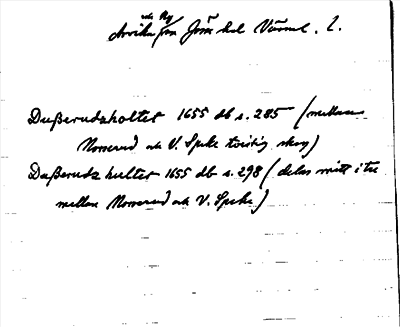 och Ny
Arvika frn Jösse hd Värml. l.
Dußerudsholtet 1655 db s. 285 (mellan
Norserud och V. Speke tvistig skog)
Dußeruds hultet 1655 db s. 298 (delas mitt i tu
mellan Norserud och V. Speke)